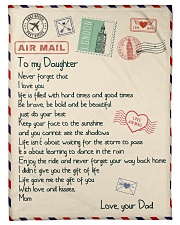 AIR MAIL
To my Daughter
Never forget that
I love you
life is filled with hard times and good times
Be brave, be bold and be beautiful
just do your best
Keep your face to the sunshine
and you cannot see the shadows
Life isn't about waiting for the storm to pass
It's about learning to dance in the rain
Enjoy the ride and never forget your way back home
I didn't give you the gift of life
Life gave me the gift of you
With love and kisses,
Mom
Love, your Dad